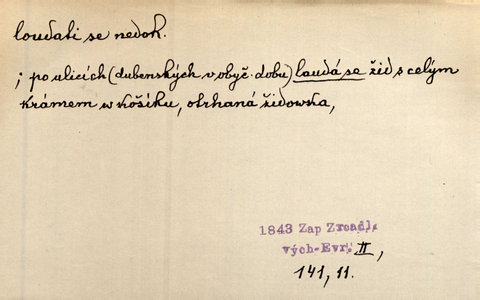 loudati se nedok.
; po ulicích (dubenských v obyč. dobu) laudá se žid s celým
krámem w košíku, otrhaná židowka,
1843 Zap Zrcadl.
vých-Evr. II,
141, 11.